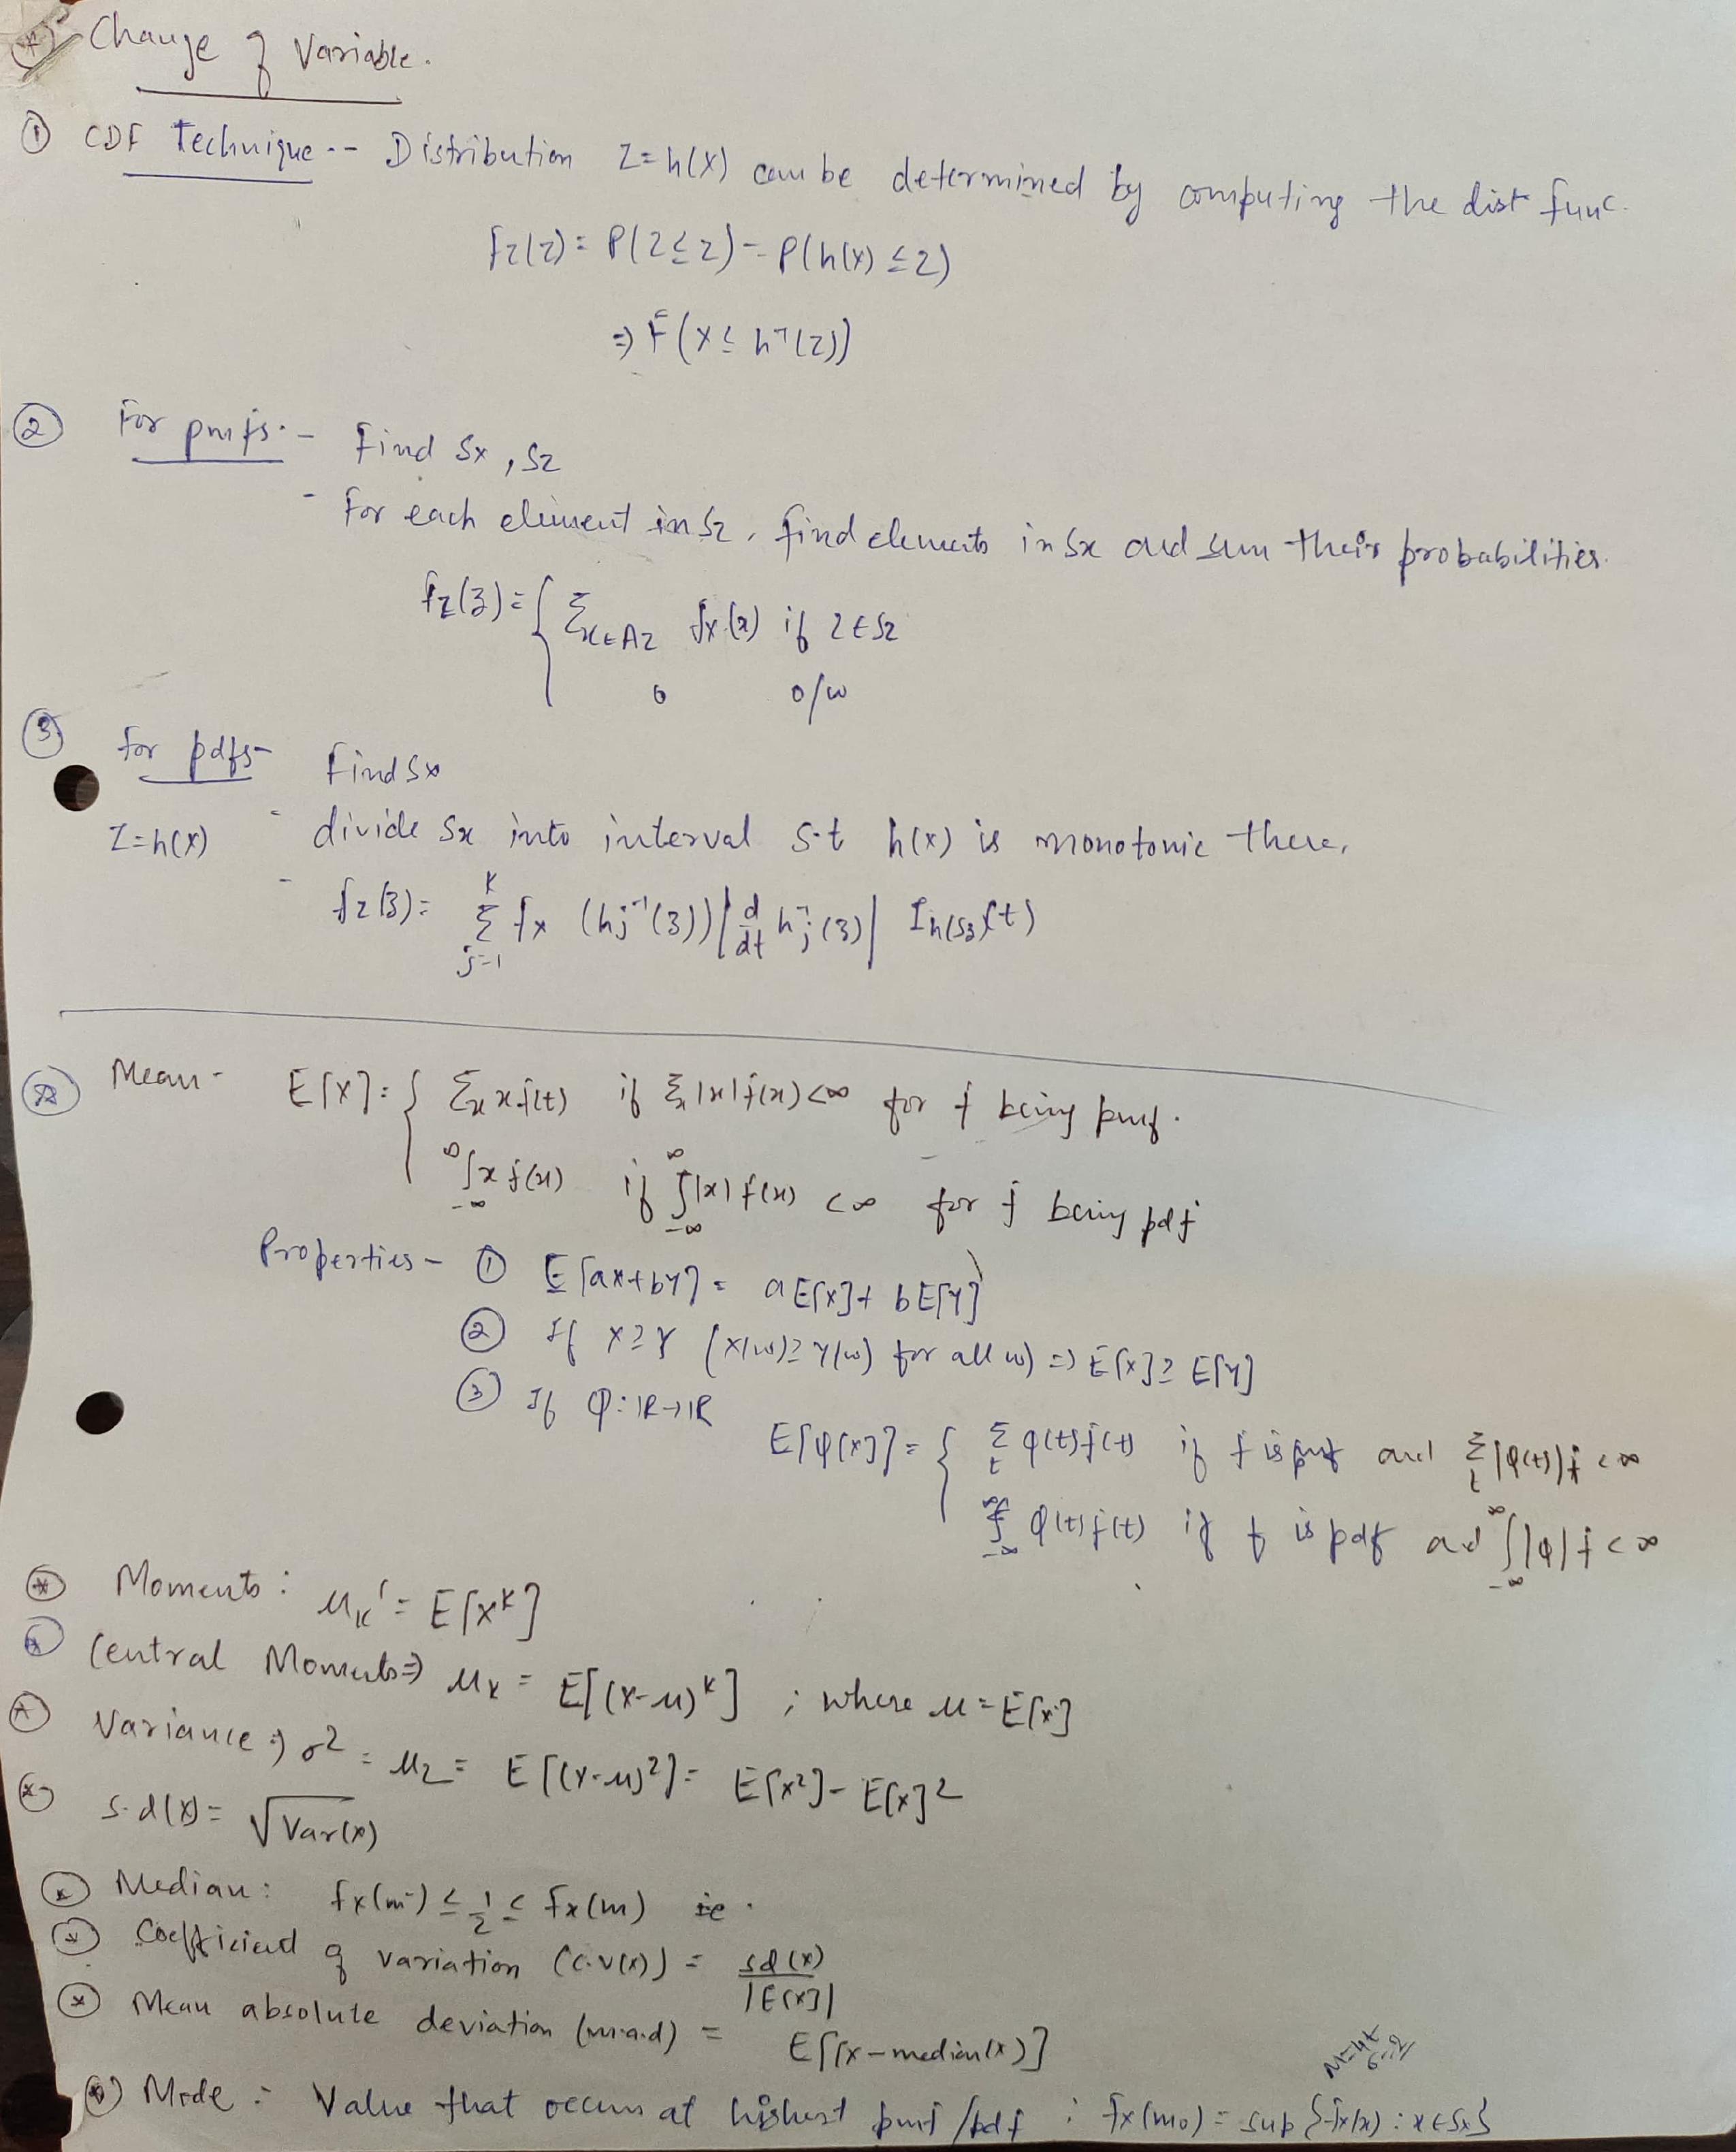 * Change of Variable.
① CDF Technique:- Distribution Z=h(X) can be determined by computing the dist func.
Fz(z) = P(Z≤z) = P(h(X) ≤z)
⇒ F(X≤ h⁻¹(z))
② For pmfs:- Find Sx, Sz
- For each element in Sz, find elements in Sx and sum their probabilities.
fz(z) = { Σx∈Az fx(x) if z∈Sz
0 o/w
③ for pdfs- Find Sx
Z=h(X) - divide Sx into interval s.t h(x) is monotonic there,
- fz(z) = Σ_{j=1}^{k} fx (hj⁻¹(z)) |d/dt hj⁻¹(z)| Ih(Sz)(t)
* Mean - E[X] = { Σx x f(t) if Σx |x|f(x)<∞ for f being pmf.
∫_{-∞}^{∞} x f(x) if ∫_{-∞}^{∞} |x| f(x) <∞ for f being pdf
Properties - ① E[ax+by] = aE[x]+ bE[y]
② If X≥Y (X(w)≥Y(w) for all w) ⇒ E[X]≥ E[Y]
③ If φ: IR→IR
E[φ(x)] = { Σt φ(t)f(t) if f is pmf and Σt |φ(t)|f <∞
∫_{-∞}^{∞} φ(t)f(t) if f is pdf ad ∫_{-∞}^{∞} |φ| f <∞
* Moments: μk' = E[X^k]
* Central Moments⇒ μk = E[(X-μ)^k] ; where μ=E[X]
* Variance ⇒ σ² = μ2 = E[(X-μ)²] = E[X²]- E[X]²
* s.d(X) = √Var(x)
* Median: Fx(m⁻) ≤ 1/2 ≤ Fx(m) ie.
* Coefficient of variation (c.v(x)) = sd(x)/|E[x]|
* Mean absolute deviation (m.a.d) = E[|x-median(x)]
* Mode: Value that occurs at highest pmf/pdf ; fx(mo) = sup {fx(x) : x∈Sx}